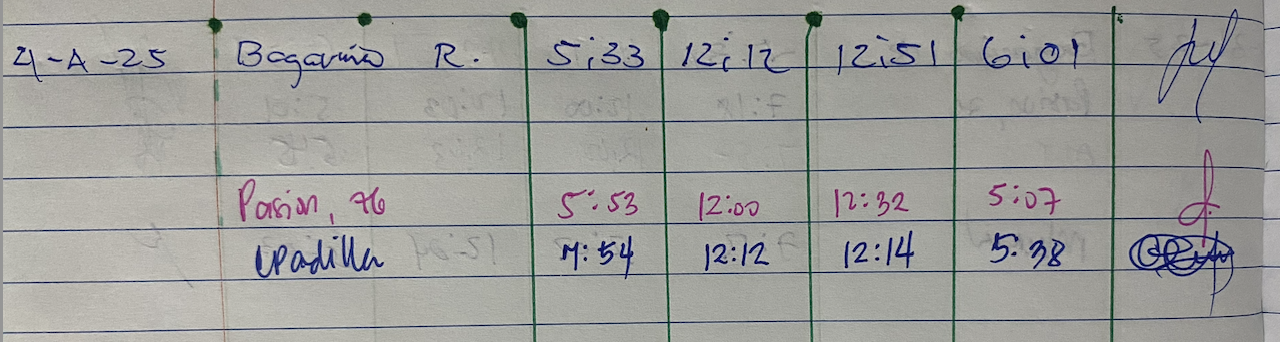 4-A-25 Bagarino R. 5:33 12:12 12:51 6:01
Pasion, 5:53 12:00 12:32 5:07
Padilla 12:12 12:14 5:38